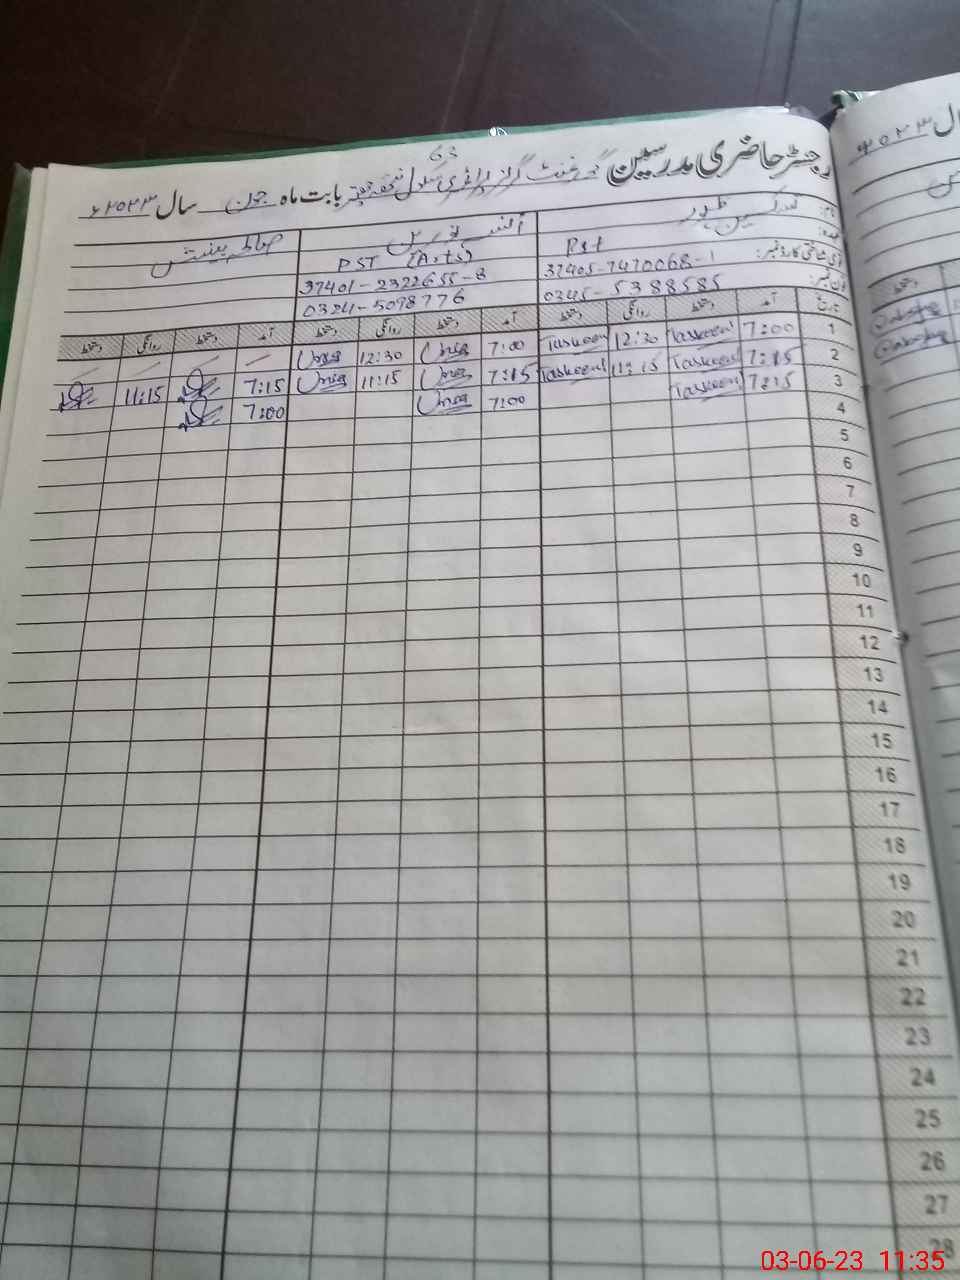 63
رجسٹر حاضری مدرسین گورنمنٹ گرلز پرائمری سکول بابت ماہ جون سال ۲۰۲۳ء
نام:
عہدہ: Pst PST (Arts)
قومی شناختی کارڈ نمبر: 37405-7470068-1 37401-2322655-8
فون نمبر: 0345-5388585 0324-5098776
تاریخ آمد دستخط روانگی دستخط آمد دستخط روانگی دستخط آمد دستخط روانگی دستخط
1 7:00 Taskeen 12:30 Taskeen 7:00 12:30
2 7:15 Taskeen 11:15 Taskeen 7:15 11:15 7:15 11:15
3 7:15 Taskeen 7:00 7:00
4
5
6
7
8
9
10
11
12
13
14
15
16
17
18
19
20
21
22
23
24
25
26
27
28
03-06-23 11:35